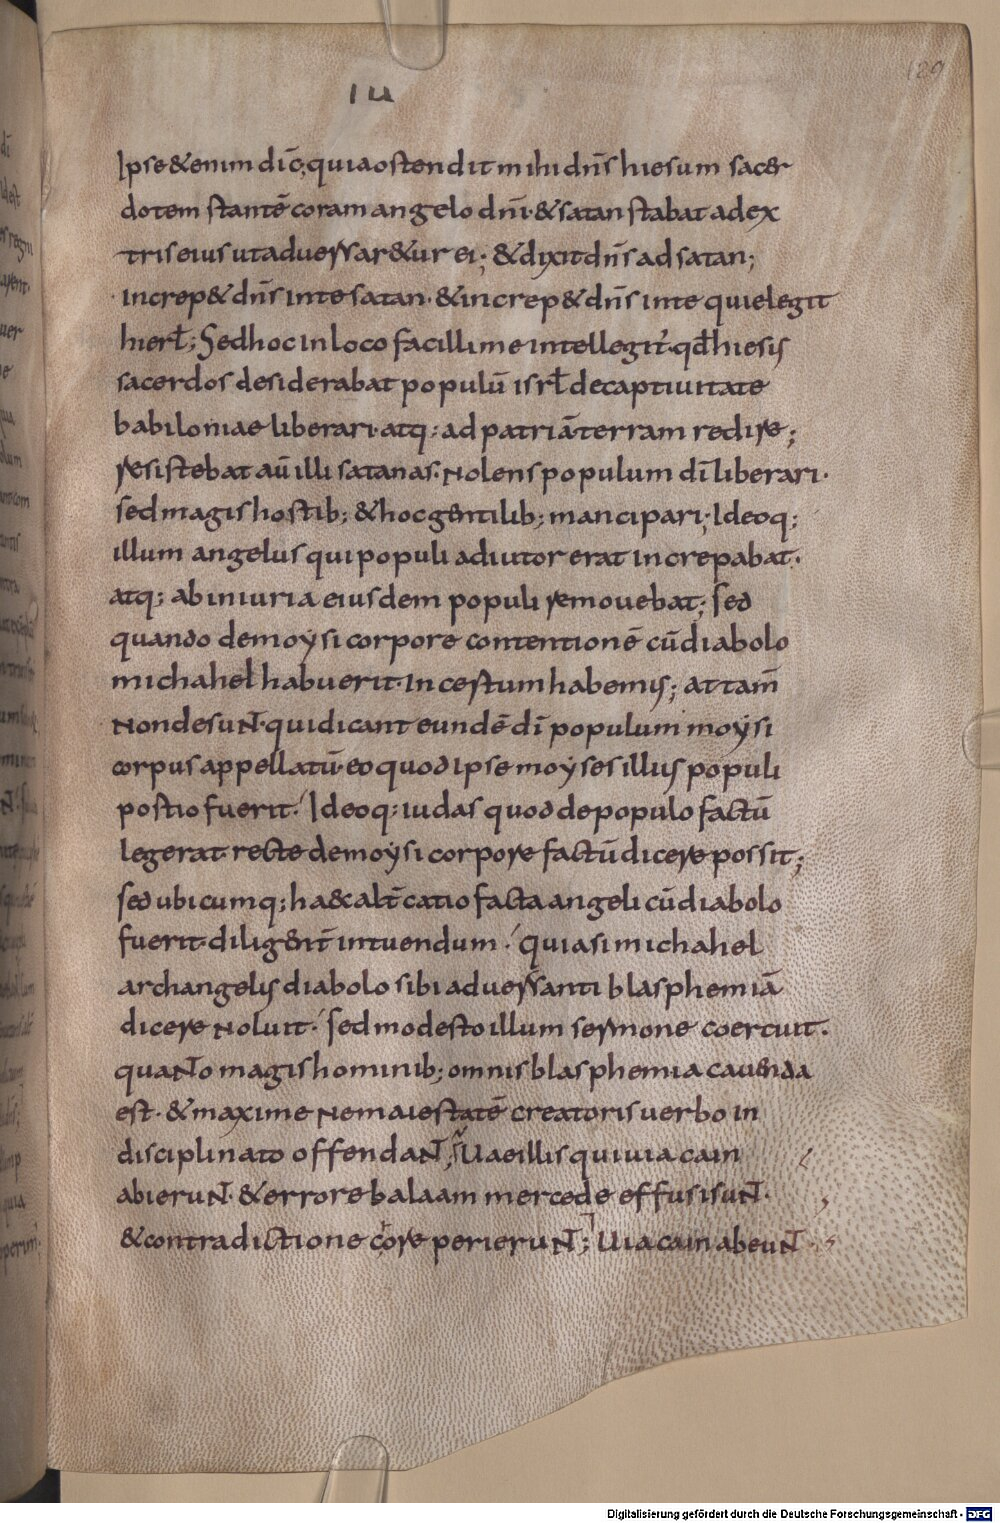 129
IU
Ipse & enim dic̄; quia ostendit mihi dn̄s hiesum sacer
dotem stantē coram angelo dn̄i· & satan stabat adex
tris eius ut aduersar&ur ei; & dixit dn̄s ad satan;
increp& dn̄s in te satan· & increp& dn̄s in te qui elegit
hierl̄; Sed hoc in loco facillime intellegit̄· qd̄ hiesus
sacerdos desiderabat populū isrl̄ de captiuitate
babiloniae liberari· atq; ad patriā terram redire;
resistebat aū illi satanas· Nolens populum dī liberari·
sed magis hostib; & hoc gentilib; mancipari; Ideoq;
illum angelus qui populi adiutor erat increpabat·
atq; ab iniuria eiusdem populi remouebat; sed
quando de moysi corpore contentionē cū diabolo
michahel habuerit· Incestum habemus; at tam̄
Non desuNT· qui dicant eundē dī populum moysi
corpus appellatū· eo quod ipse moyses illius populi
postio fuerit· Ideoq; iudas quod de populo factū
legerat recte de moysi corpore factū dicere possit;
sed ubicumq; haec alt̄catio facta angeli cū diabolo
fuerit· dilig&nt̄ intuendum· quia si michahel
archangelus diabolo sibi aduersanti blasphemiā
dicere Noluit· sed modesto illum sermone coercuit·
quaNTo magis hominib; omnis blasphemia cauenda
est· & maxime Ne maiestatē creatoris uerbo in
disciplinato offendaNT; Uae illis qui uia cain
abieruNT· & errore balaam mercede effusi suNT·
& contradictione core perieruNT; Uia cain abeuNT·
Digitalisierung gefördert durch die Deutsche Forschungsgemeinschaft - DFG